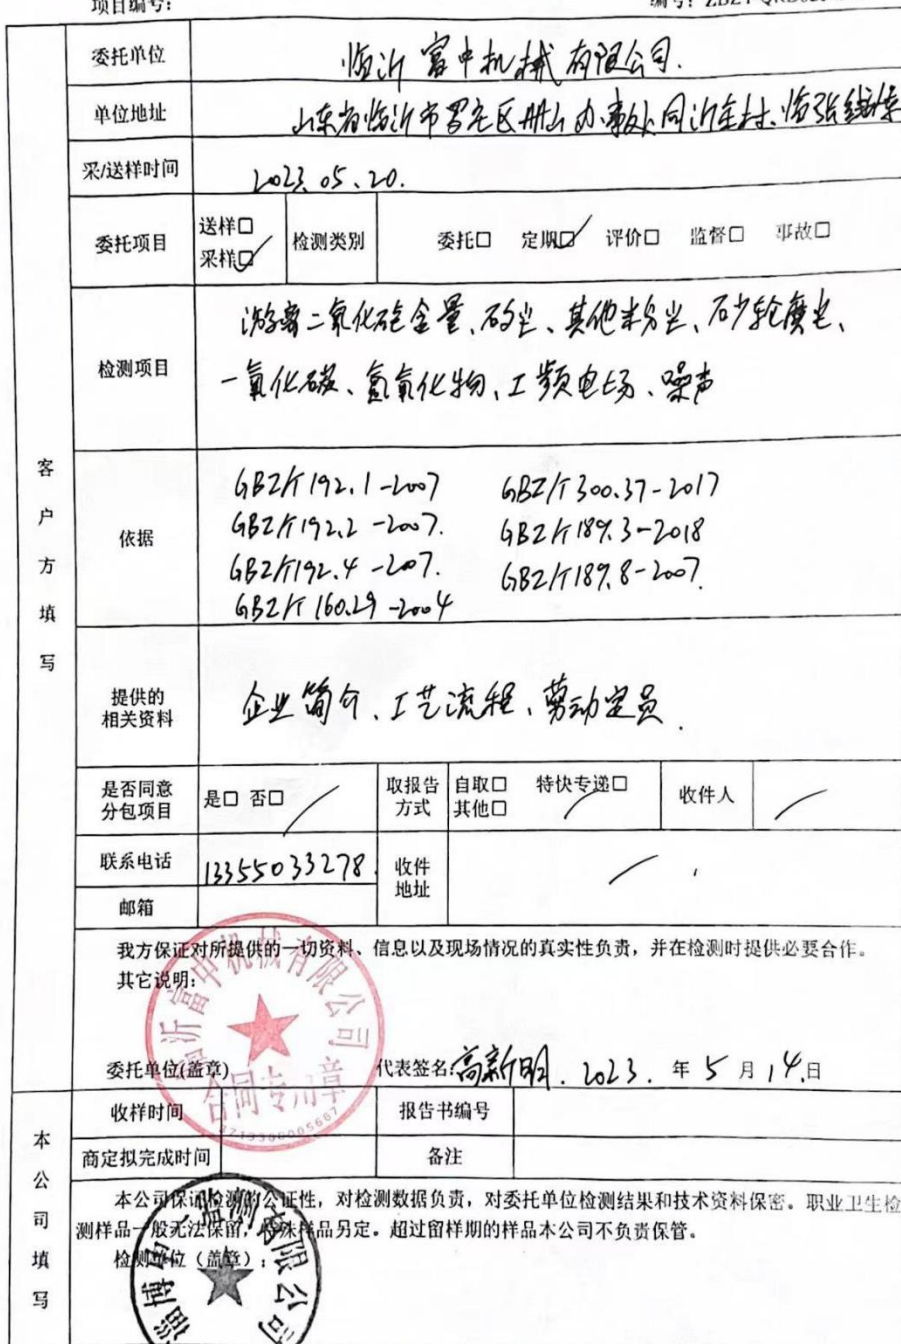 项目编号:
委托单位 临沂富中机械有限公司.
单位地址 山东省临沂市罗庄区册山办事处同沂庄村、临张线
采/送样时间 2023.05.20.
委托项目 送样□ 采样☑ 检测类别 委托□ 定期☑ 评价□ 监督□ 事故□
检测项目 游离二氧化硅含量、矽尘、其他粉尘、砂轮磨尘、
一氧化碳、氮氧化物、工频电场、噪声
依据
GBZ/T192.1-2007 GBZ/T300.37-2017
GBZ/T192.2-2007. GBZ/T189.3-2018
GBZ/T192.4-2007. GBZ/T189.8-2007.
GBZ/T160.29-2004
提供的
相关资料 企业简介、工艺流程、劳动定员.
是否同意
分包项目 是□ 否□ 取报告
方式 自取□ 特快专递□
其他□ 收件人
联系电话 13355033278 收件
地址
邮箱
客户方填写
我方保证对所提供的一切资料、信息以及现场情况的真实性负责，并在检测时提供必要合作。
其它说明:
临沂富中机械有限公司
合同专用章
委托单位(盖章) 代表签名:高新明. 2023. 年 5 月 14.日
收样时间 报告书编号
商定拟完成时间 备注
本公司填写
本公司保证检测的公证性，对检测数据负责，对委托单位检测结果和技术资料保密。职业卫生检
测样品一般无法保留，特殊样品另定。超过留样期的样品本公司不负责保管。
检测单位（盖章）: